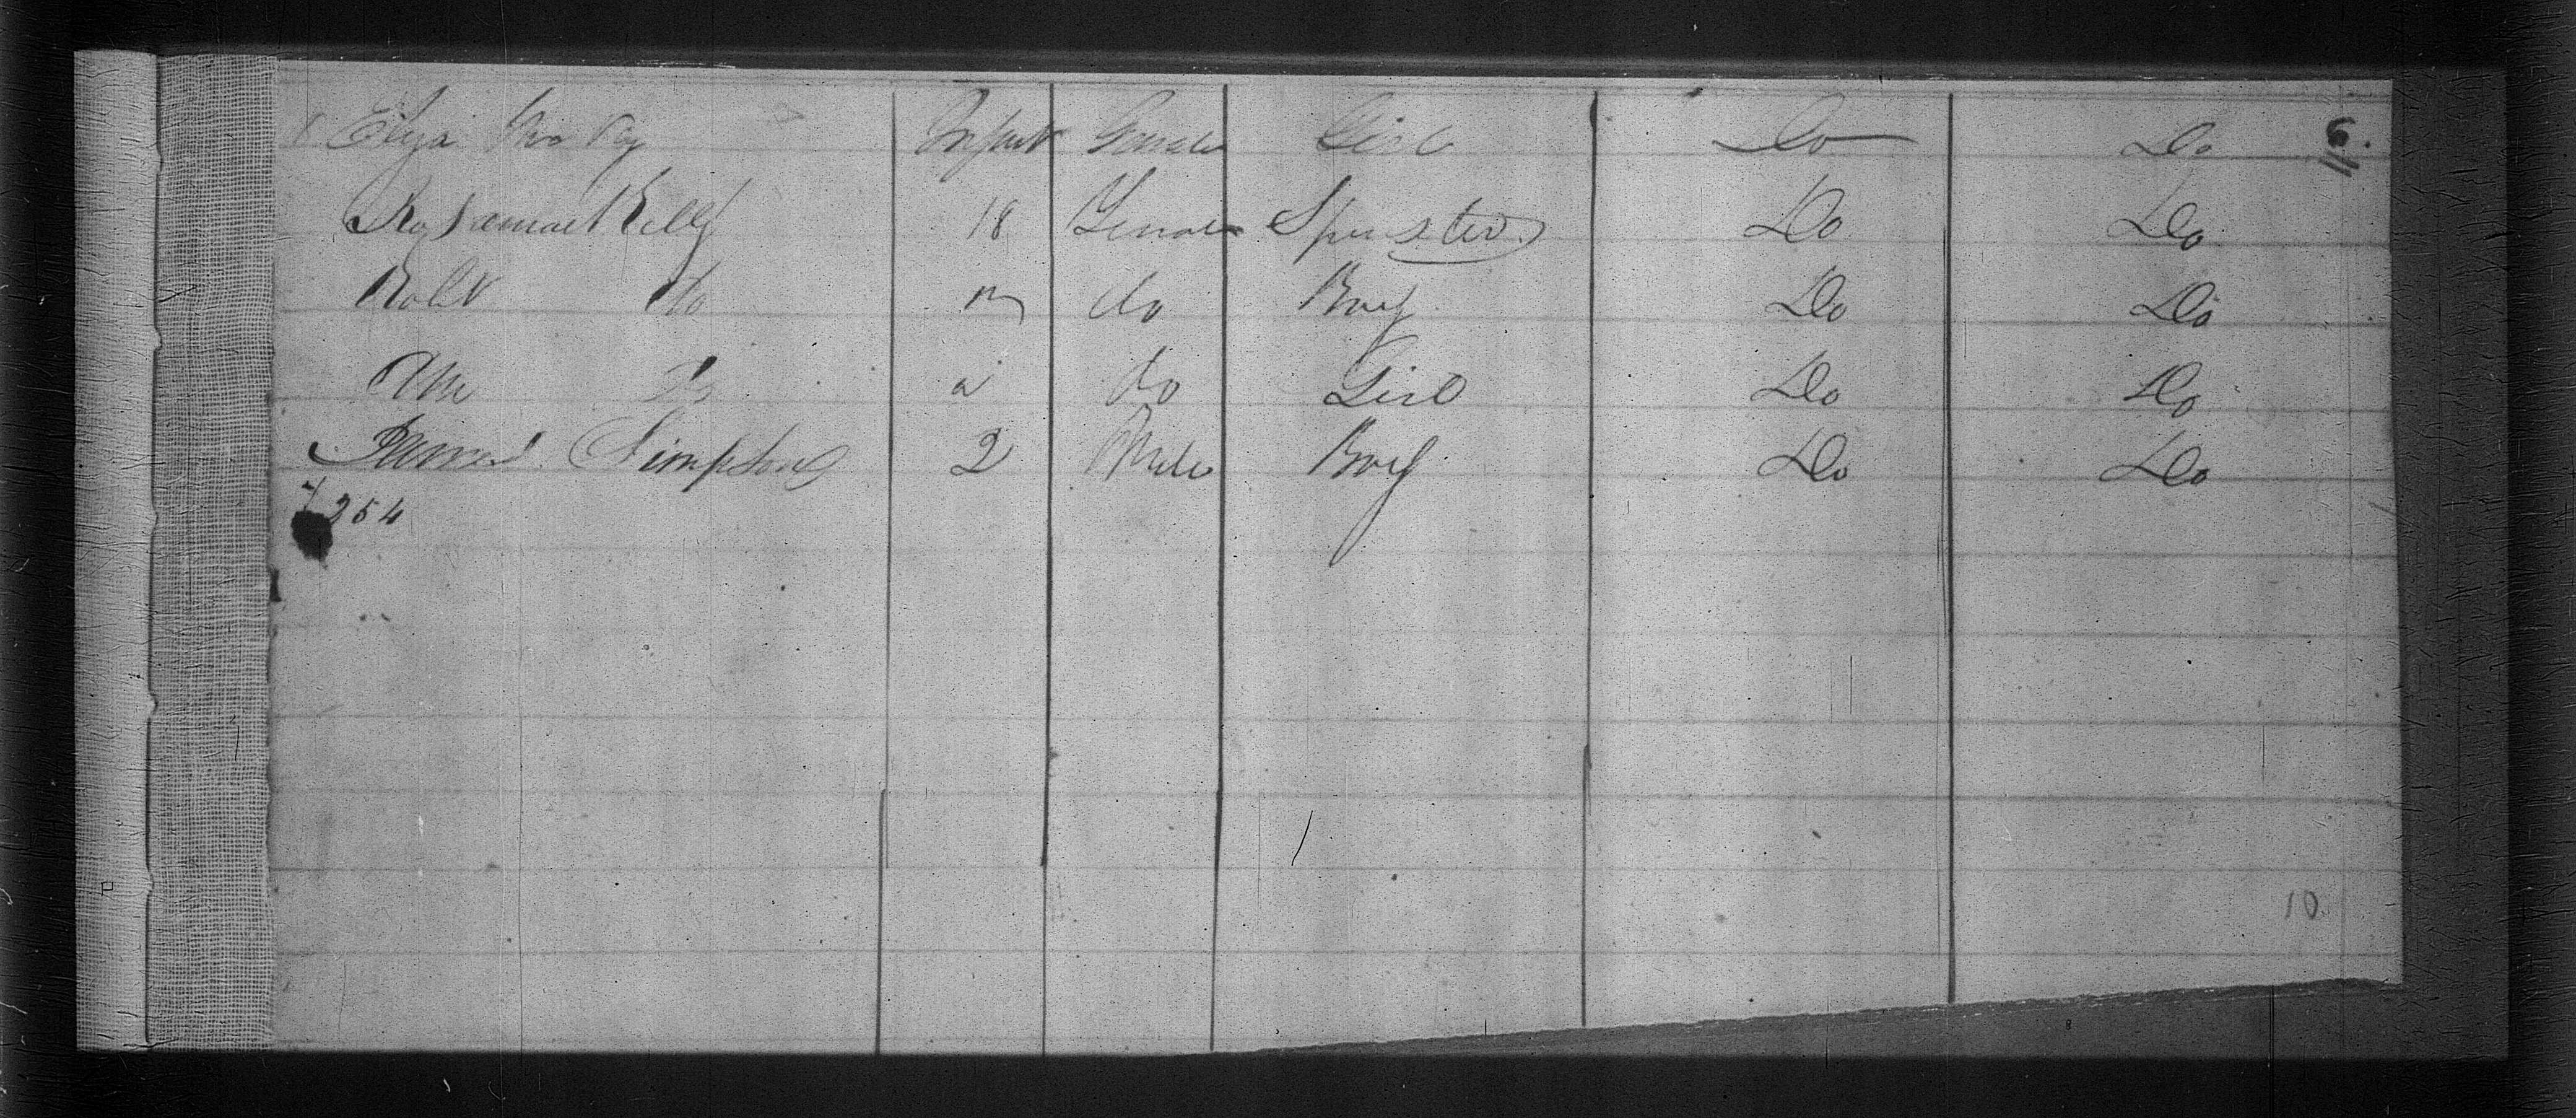 Eliza Infant Female Girl Do Do 6.
Kelly 18 Female Spinster Do Do
Robt do do Boy Do Do
Ann Do do Girl Do Do
James Simpson 2 Male Boy Do Do
254
10